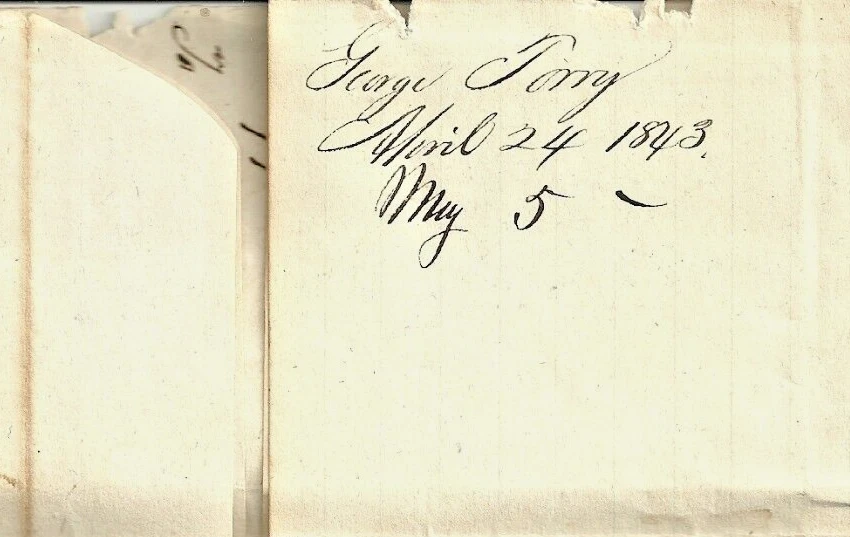 George Torry
April 24 1843.
May 5 –